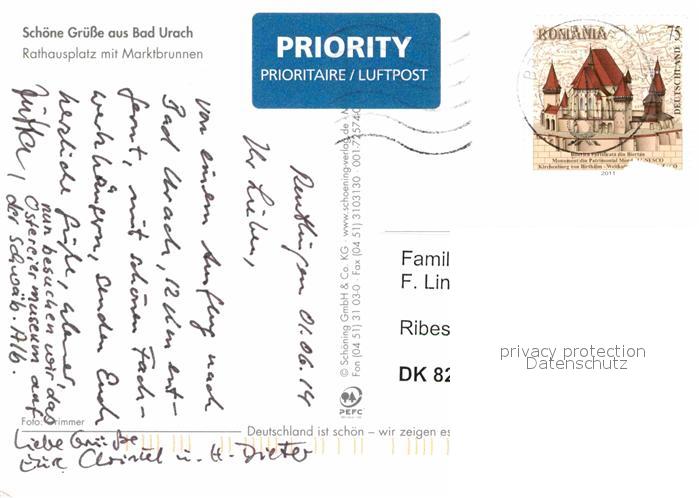 Schöne Grüße aus Bad Urach
Rathausplatz mit Marktbrunnen
PRIORITY
PRIORITAIRE / LUFTPOST
ROMANIA
75
DEUTSCHLAND
Biserica Fortificata din Biertan
Monument din Patrimoniul Mond. UNESCO
Kirchenburg von Birthälm - Weltku
2011
Reutlingen 01.06.14
Ihr Lieben,
von einem Ausflug nach
Bad Urach, 12 km ent-
fernt, mit schönen Fach-
werkhäusern, senden Euch
herzliche Grüße,
Jutta,
nun besuchen wir das
Ostereiermuseum auf
der Schwäb. Alb.
Liebe Grüße
Eure Christel u. H-Dieter
© Schöning GmbH & Co. KG · www.schoening-verlag.de ·
Fon (04 51) 31 03-0 · Fax (04 51) 3103130 · 001-72574-0
PEFC
Famil
F. Lin
Ribes
DK 82
privacy protection
Datenschutz
Foto: Grimmer
Deutschland ist schön – wir zeigen es